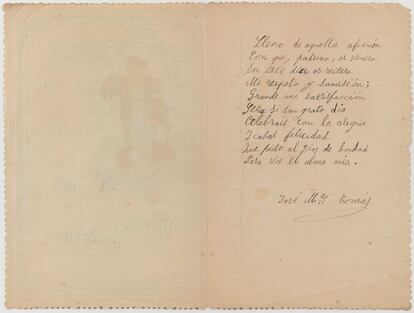 Lleno de aquella afición
Con que, padrino, os venero
En este dia os reitero
Mi respeto y sumisión;
Grande mi satisfacción
Será si tan grato dia
Celebrais con la alegria
Y cabal felicidad
Que pide al Dios de bondad
Para Vos el alma mia.
José Mª Tomás